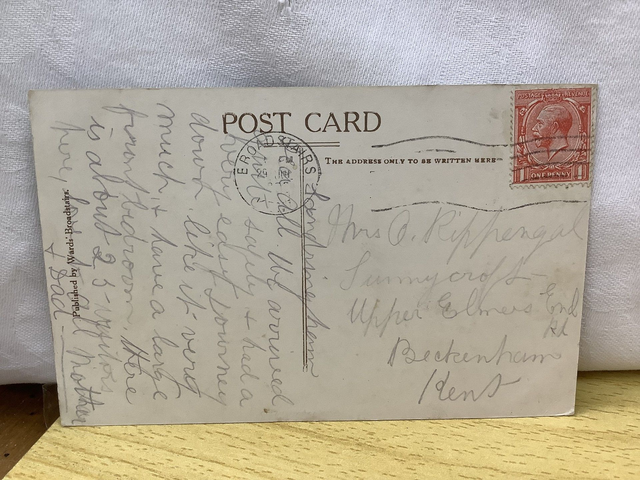 POST CARD
THE ADDRESS ONLY TO BE WRITTEN HERE
ONE PENNY
BROADSTAIRS
Published by Wards' Broadstairs.
Mrs O. Rippengal
Sunnycroft
Upper Elmers End
Rd
Beckenham
Kent
all. We arrived
safely & had a
very easy journey
down. like it very
much & have a large
front bedroom. There
is about 25 visitors
here, all Mother
& Dad